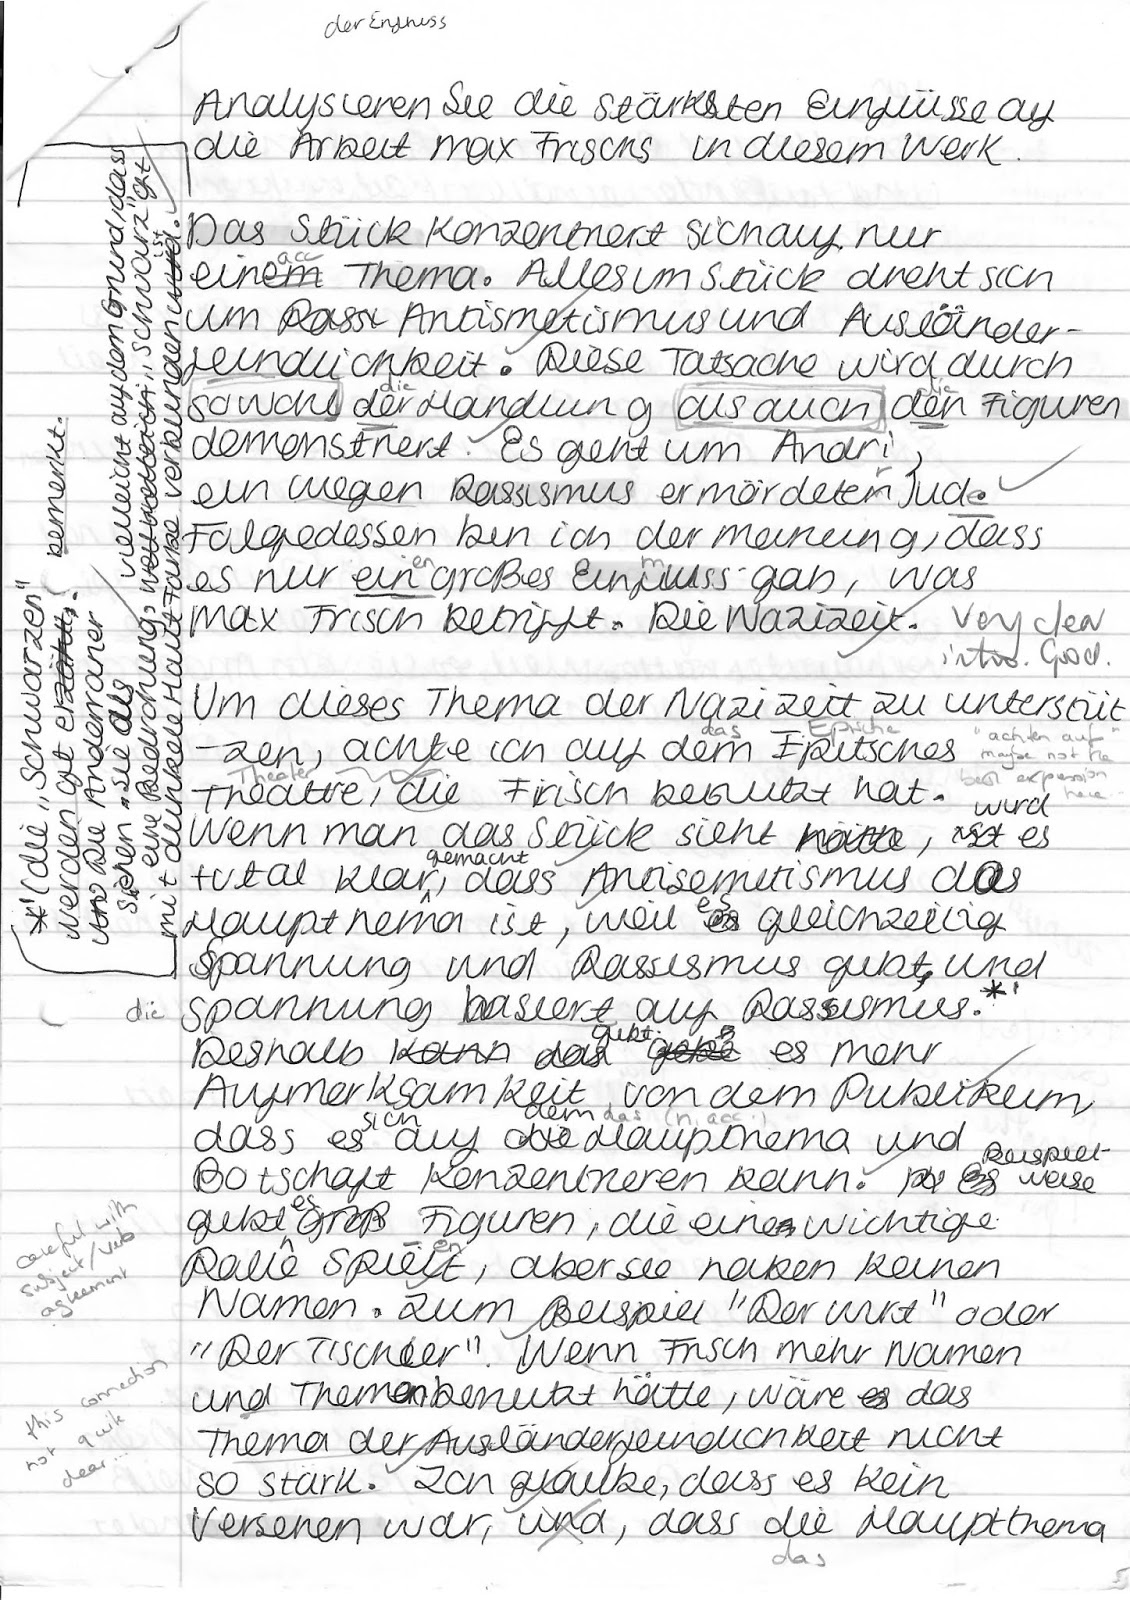 der Einfluss
Analysieren Sie die stärksten Einflüsse auf
die Arbeit Max Frischs in diesem Werk.
Das Stück konzentriert sich auf nur
acc
einem Thema. Alles im Stück dreht sich
um Rassi Antismetismus und Ausländer-
feindlichkeit. Diese Tatsache wird durch
die die
sowohl der Handlung als auch den Figuren
demonstriert. Es geht um Andri,
ein wegen Rassismus ermördeter Jude.
Folgedessen bin ich der Meinung, dass
en
es nur ein großes Einfluss gab, was
Max Frisch betrifft. Die Nazizeit.
Very clear
intro. Good.
Um dieses Thema der Nazizeit zu unterstüt
das Epische
-zen, achte ich auf dem Epitsches
"achten auf"
maybe not the
best expression
here...
Theater
Theatre, die Frisch benutzt hat.
wird
Wenn man das Stück sieht hätte, ist es
gemacht
total klar, dass Antisemetismus das
es
Hauptthema ist, weil es gleichzeitig
Spannung und Rassismus gibt, und
die
Spannung basiert auf Rassismus.*'
gibt
Deshalb kann das es mehr
Aufmerksamkeit von dem Publikum,
sich dem das (n, acc.)
dass es auf die Hauptthema und
Botschaft konzentrieren kann.
Beispiel-
weise
es
gibt groß Figuren, die eine wichtige
en
Rolle Spielt, aber sie haben keinen
Namen. Zum Beispiel "Der Wirt" oder
"Der Tischler". Wenn Frisch mehr Namen
und Themen benutzt hätte, wäre es das
Thema der Ausländerfeindlichkeit nicht
so stark. Ich glaube, dass es kein
Versehen war, und, dass die Hauptthema
das
*'(die „Schwarzen"
werden oft erzählt.
bemerkt.
und Die Andorraner
sehen sie als
eine Bedrohung,
vielleicht auf dem Grund, dass
„schwarz" oft
mit dunkele Hautfarbe verbunden wird.
ist
careful with
subject/verb
agreement
this connection
not quite
clear...